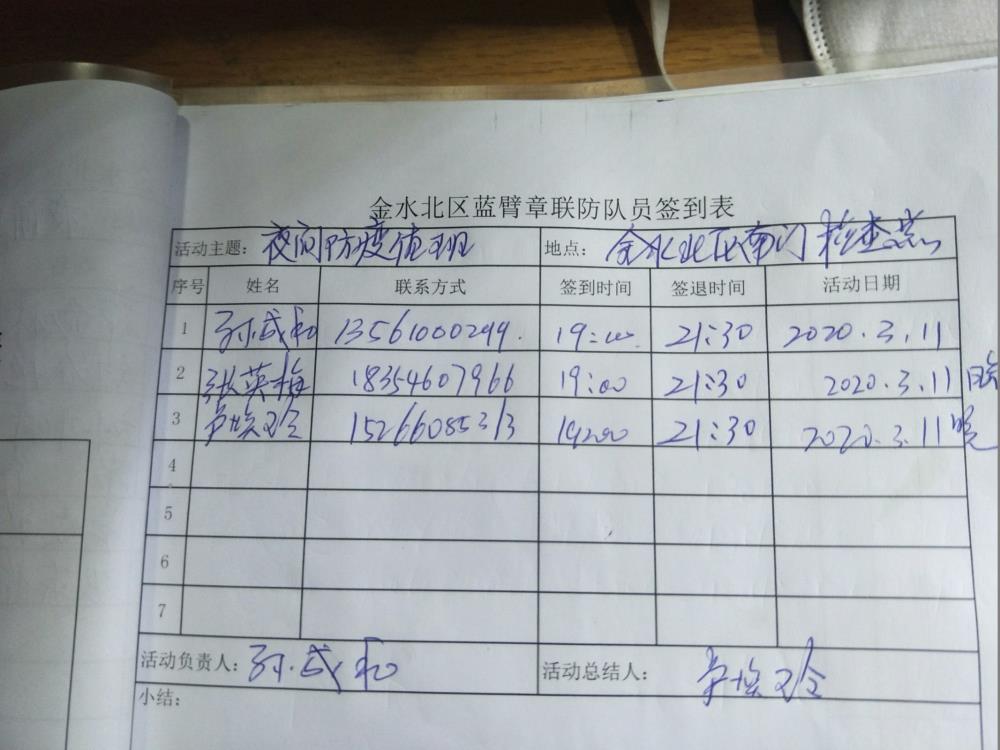 金水北区蓝臂章联防队员签到表
活动主题: 夜间防疫值班 地点: 金水北区南门检查点
序号 姓名 联系方式 签到时间 签退时间 活动日期
1 孙成和 13561000299. 19:00 21:30 2020.3.11
2 张英梅 18354607966 19:00 21:30 2020.3.11 晚
3 15266085313 19:00 21:30 2020.3.11 晚
4
5
6
7
活动负责人: 孙成和 活动总结人:
小结: